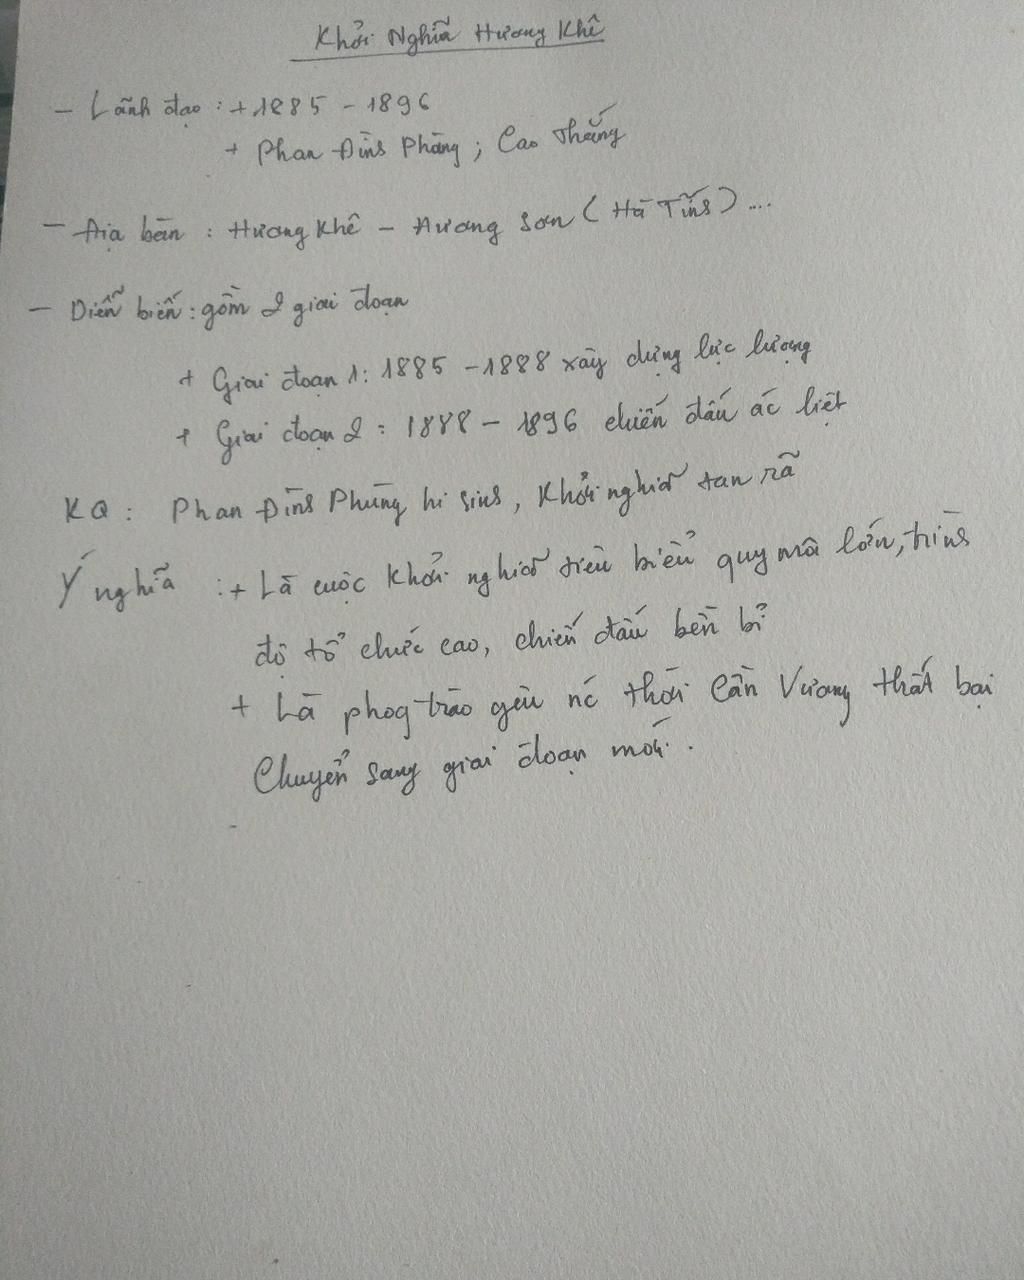 Khởi Nghĩa Hương Khê
- Lãnh đạo : + 1885 - 1896
+ Phan Đình Phùng ; Cao Thắng
- Địa bàn : Hương Khê - Hương Sơn ( Hà Tĩnh ) ...
- Diễn biến : gồm 2 giai đoạn
+ Giai đoạn 1 : 1885 - 1888 xây dựng lực lượng
+ Giai đoạn 2 : 1888 - 1896 chiến đấu ác liệt
KQ : Phan Đình Phùng hi sinh, Khởi nghĩa tan rã
Ý nghĩa : + Là cuộc khởi nghĩa tiêu biểu quy mô lớn, trình
độ tổ chức cao, chiến đấu bền bỉ
+ Là phog trào yêu nc thời Cần Vương thất bại
Chuyển sang giai đoạn mới.